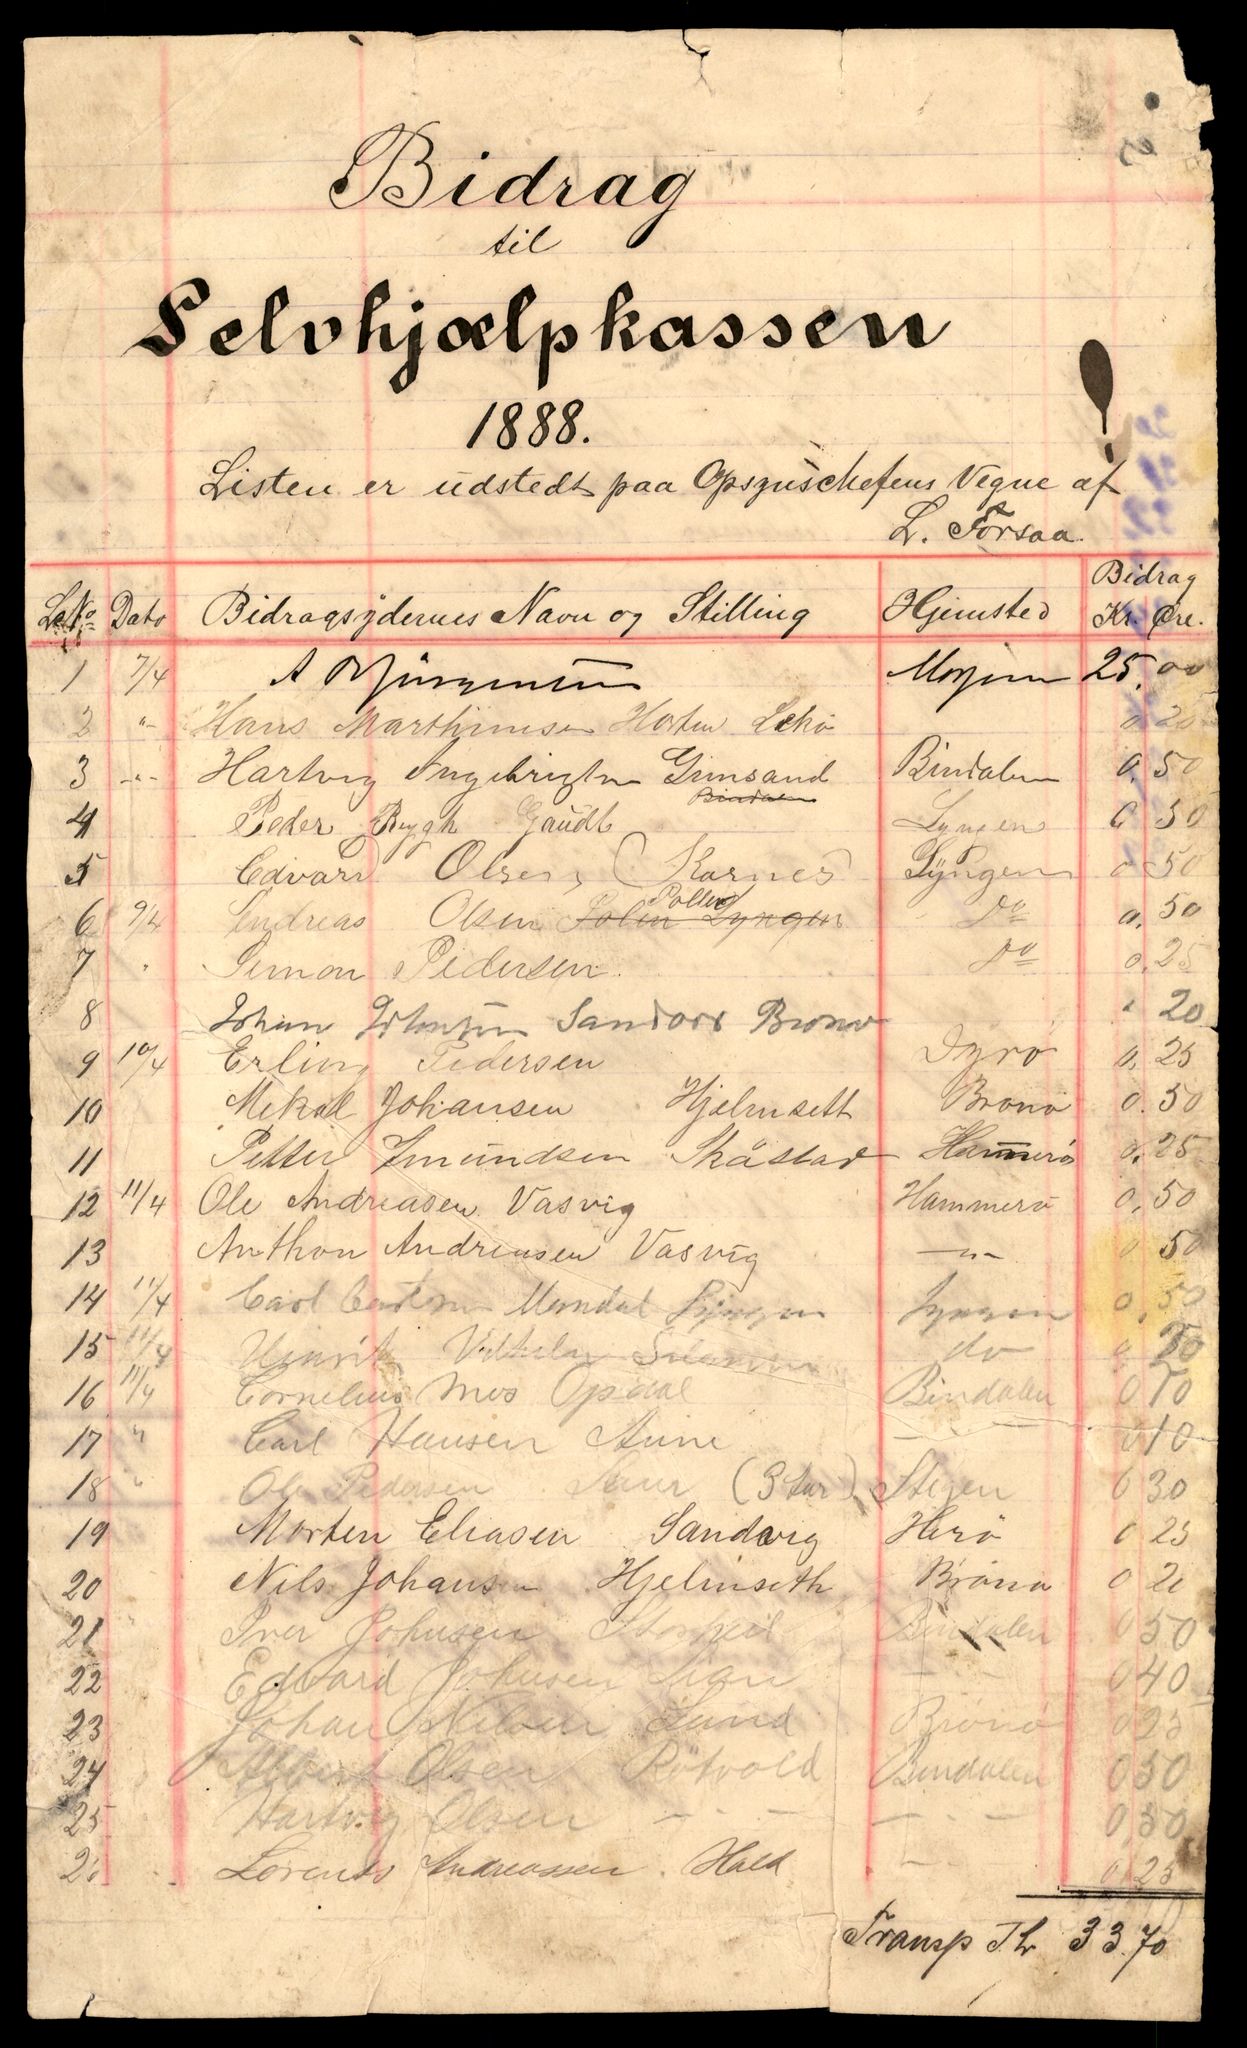 Bidrag
til
Selvhjælpkassen
1888.
Listen er udstedt paa Opsynschefens Vegne af
L. Forsaa.
LeNo Dato Bidragsydernes Navn og Stilling Hjemsted Bidrag Kr. Øre.
1 7/4 A 25,00
2 " Hans Marthinusen Horten Lekø 0.25
3 -"- Hartvig Ingebrigtsen Grimsand Bindalen 0.50
Bindalen
4 Peder Bygh Gaudt Lyngen 0 50
5 Edvard Olsen, (Karnes) Lyngen 0 50
6 9/4 Andreas Olsen Polen Lyngen Pollen Do 0.50
7 " Simon Pedersen. Do 0.25
8 Johan Sandvor Brønø " 20
9 10/4 Erling Pedersen Dyrø 0.25
10 Mikal Johansen Hjelmseth Brønø 0.50
11 Petter Amundsen Skåstad Hammerø 0.25
12 11/4 Ole Andreasen Vasvig Hammerø 0,50
13 Anthon Andreasen Vasvig -"- 0 50
14 11/4 Carl Lyngen Lyngen 0,50
15 11/4 Henrik do 0 50
16 11/4 Cornelius Mos Opdal Bindalen 0 50
17 " Carl Hansen Aune - - 0 10
18 " Ole Pedersen (Stur) Stegen 0 30
19 Morten Eliasen Sandvig Herø 0 25
20 Nils Johansen Hjelmseth Brønø 0 20
21 Iver Johnsen Bindalen 0 50
22 Edvard Johnsen - - 0 40
23 Johan Nilsen Lund Brønø 0 25
24 Albert Olsen Røtvold Bindalen 0 50
25 Hartvig Olsen - - - - - - 0,50
Lorents Andreassen. Hald - - 0,25
Transp Kr 33.70